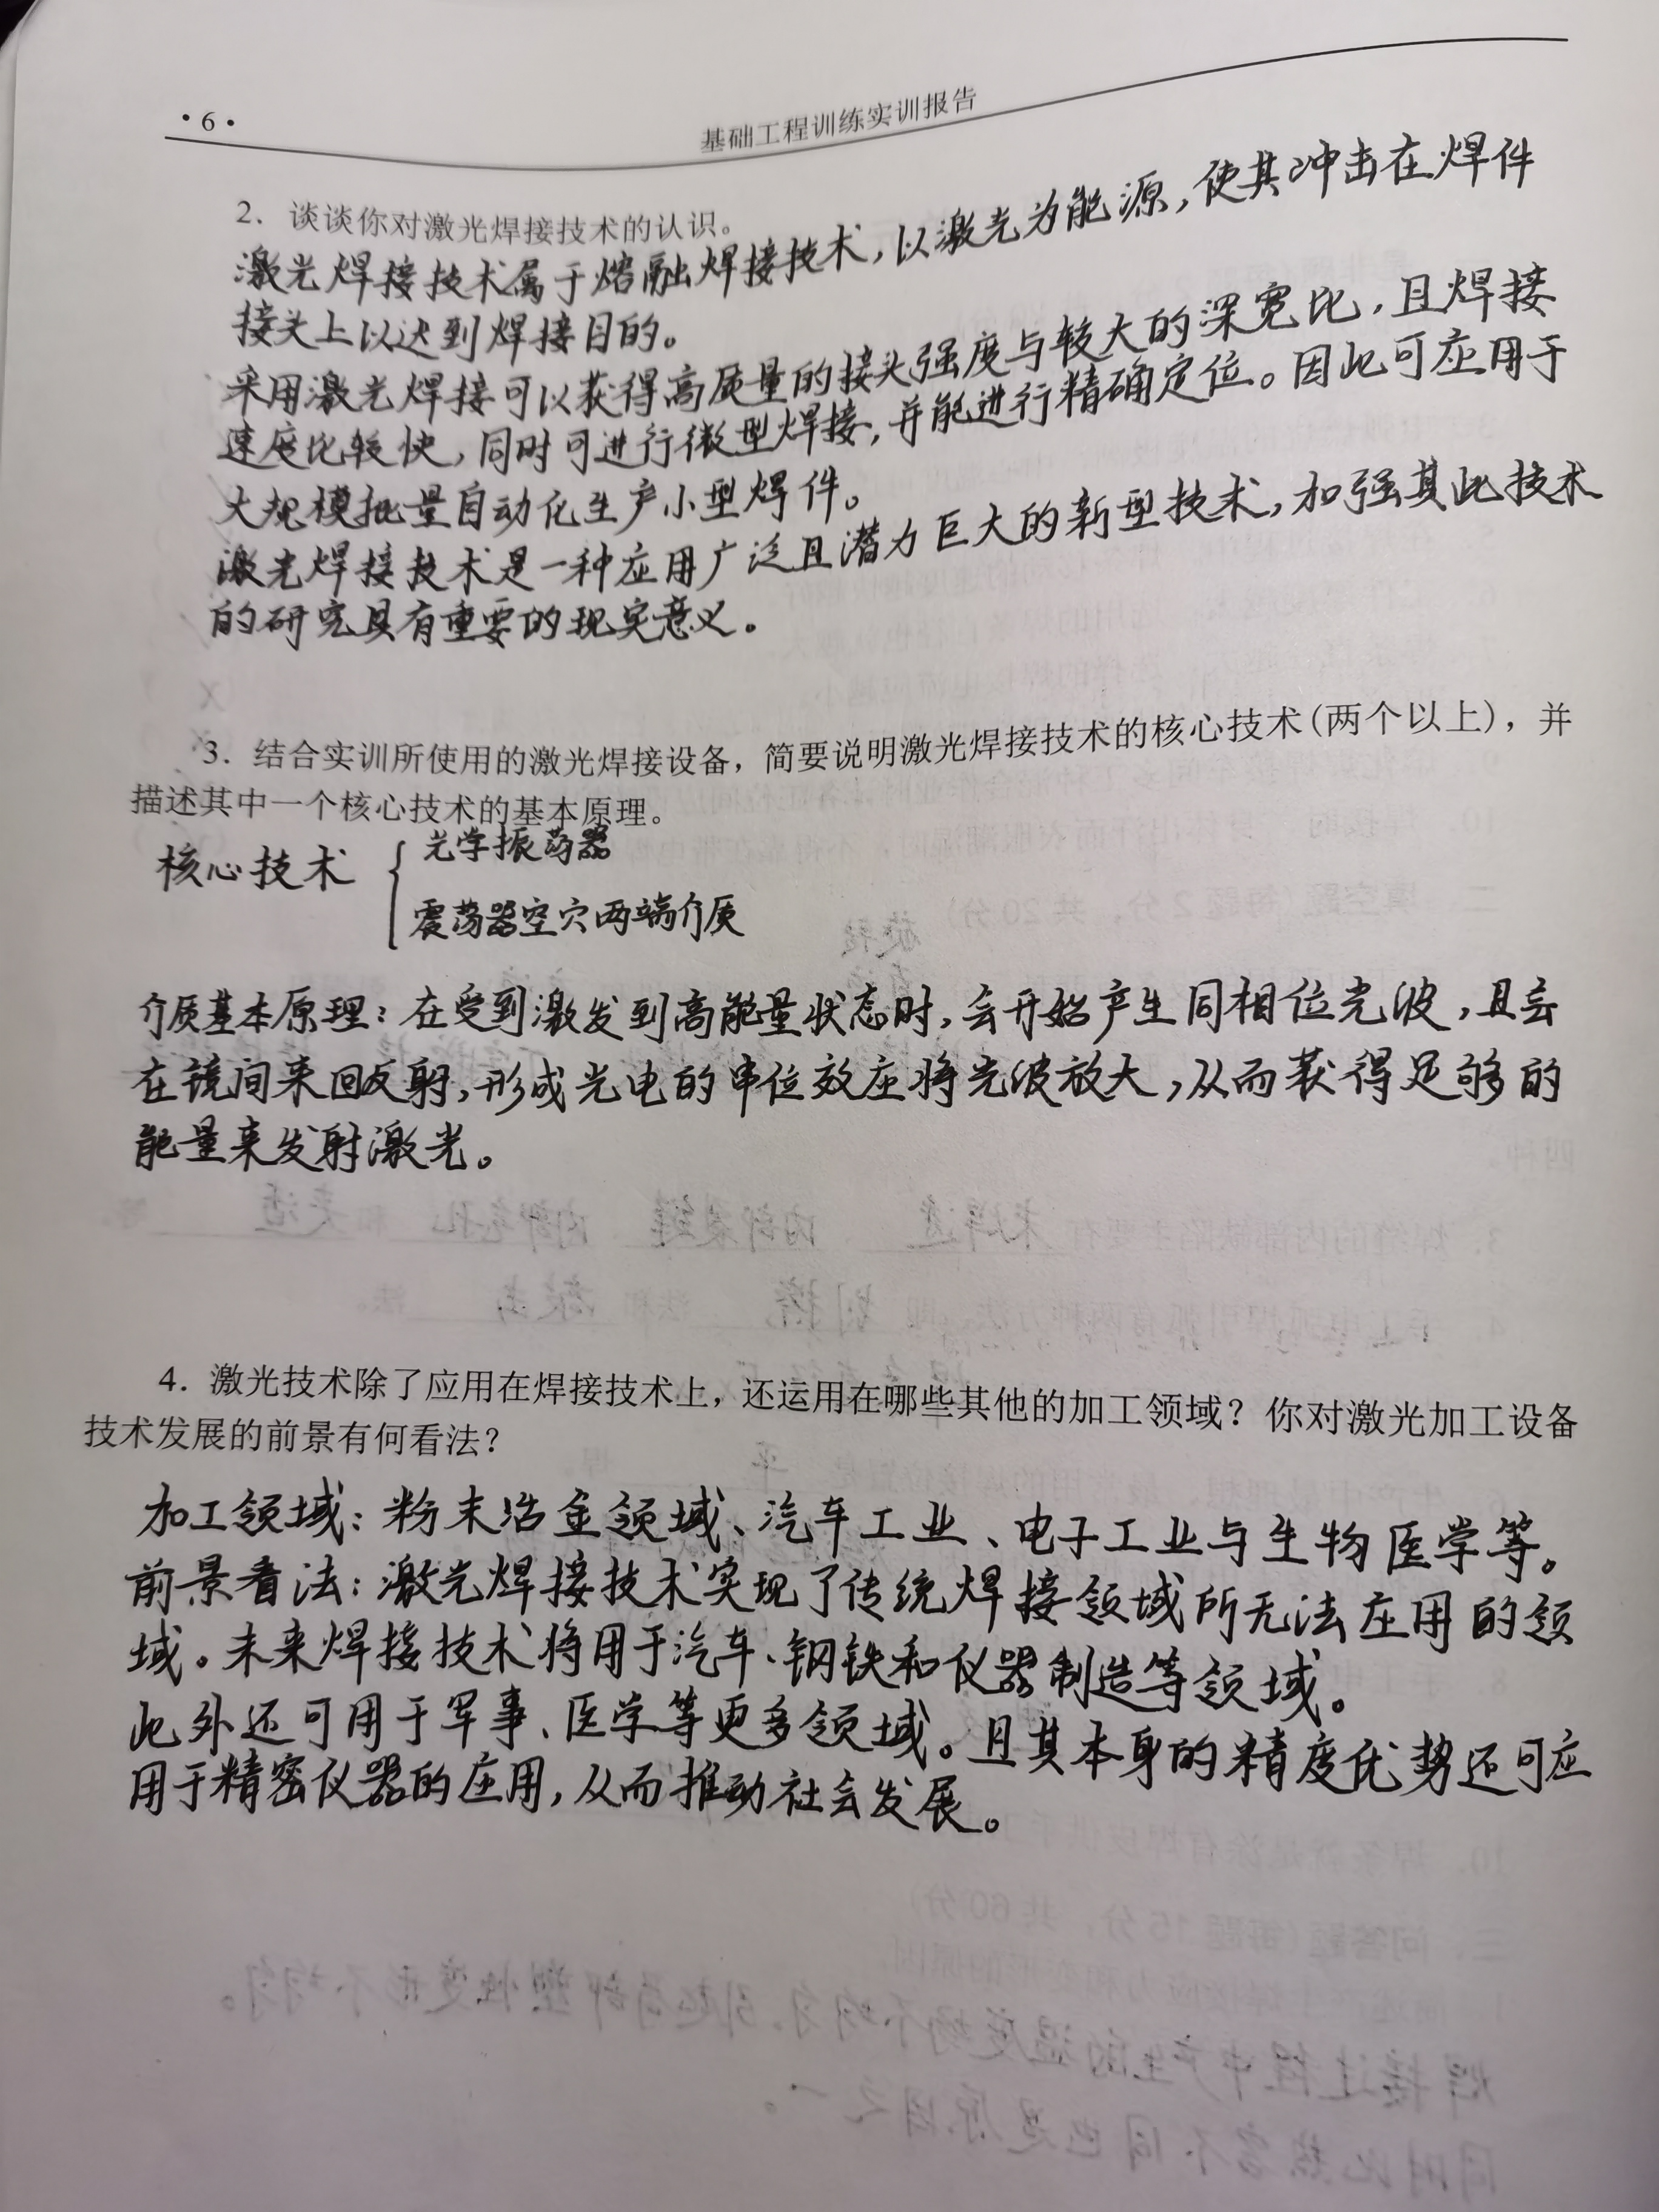 ·6·
基础工程训练实训报告
2. 谈谈你对激光焊接技术的认识。
激光焊接技术属于熔融焊接技术,以激光为能源,使其冲击在焊件
接头上以达到焊接目的。
采用激光焊接可以获得高质量的接头强度与较大的深宽比,且焊接
速度比较快,同时可进行微型焊接,并能进行精确定位。因此可应用于
大规模批量自动化生产小型焊件。
激光焊接技术是一种应用广泛且潜力巨大的新型技术,加强其此技术
的研究具有重要的现实意义。
3. 结合实训所使用的激光焊接设备,简要说明激光焊接技术的核心技术(两个以上),并
描述其中一个核心技术的基本原理。
核心技术 { 光学振荡器
震荡器空穴两端介质
介质基本原理:在受到激发到高能量状态时,会开始产生同相位光波,且会
在镜间来回反射,形成光电的串位效应将光波放大,从而获得足够的
能量来发射激光。
4. 激光技术除了应用在焊接技术上,还运用在哪些其他的加工领域?你对激光加工设备
技术发展的前景有何看法?
加工领域:粉末冶金领域、汽车工业、电子工业与生物医学等。
前景看法:激光焊接技术实现了传统焊接领域所无法应用的领
域。未来焊接技术将用于汽车、钢铁和仪器制造等领域。
此外还可用于军事、医学等更多领域。且其本身的精度优势还可应
用于精密仪器的应用,从而推动社会发展。